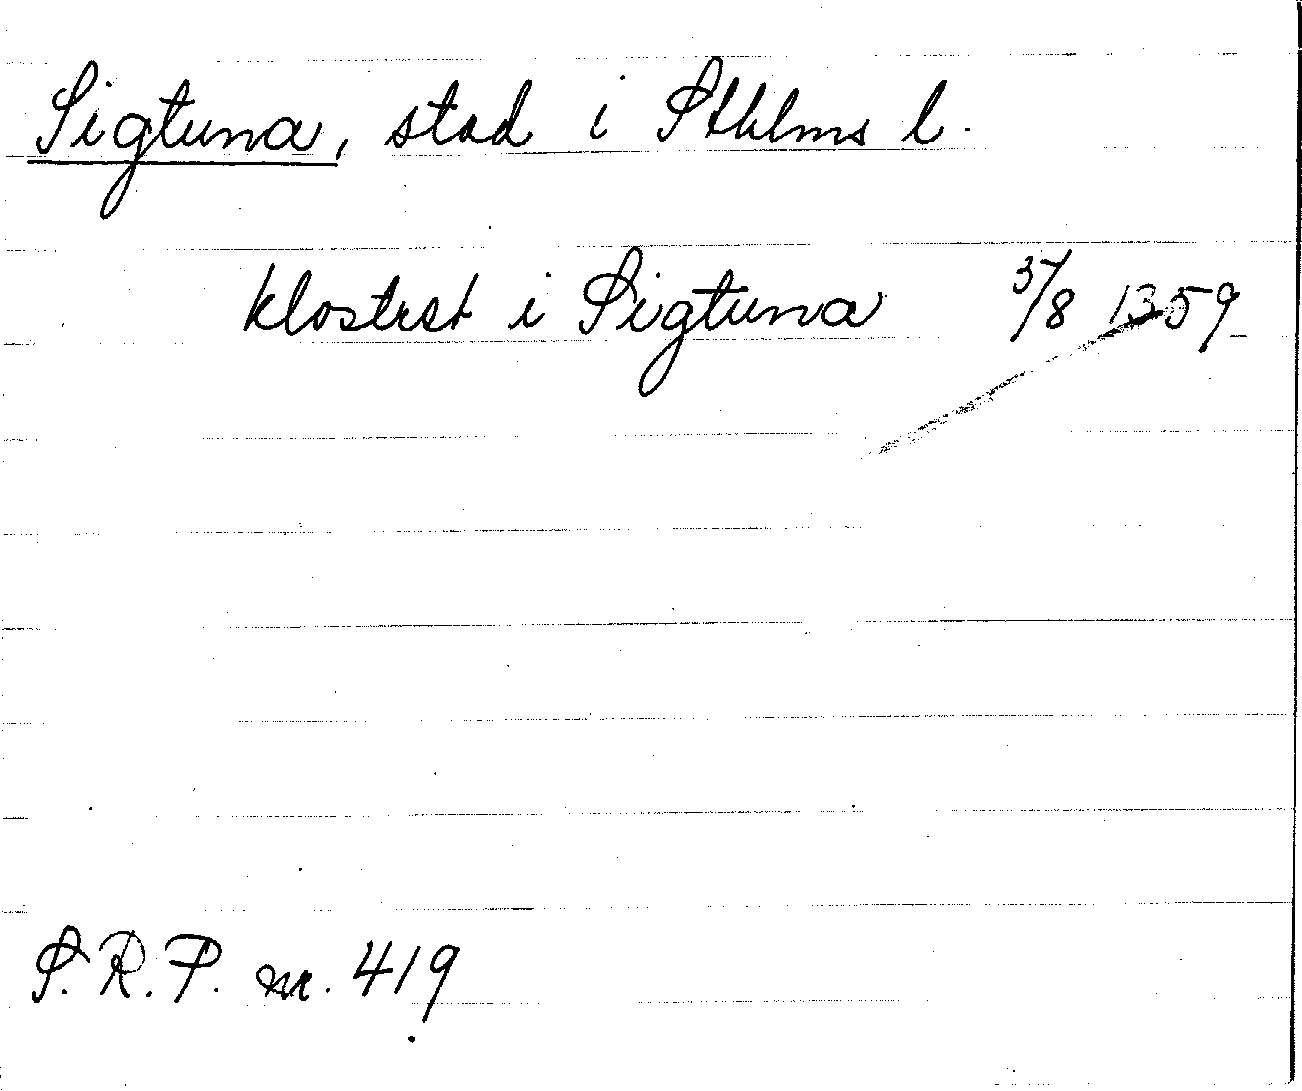 Sigtuna, stad i Sthlms l.
klostret i Sigtuna 5/8 1359
S.R.P. nr. 419